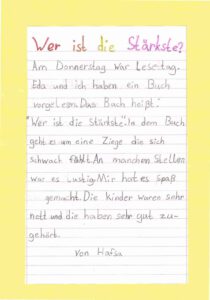 Wer ist die Stärkste?
Am Donnerstag war Lesetag.
Eda und ich haben ein Buch
vorgelesen. Das Buch heißt:
"Wer ist die Stärkste". In dem Buch
geht es um eine Ziege die sich
schwach fühlt. An manchen Stellen
war es lustig. Mir hat es spaß
gemacht. Die Kinder waren sehr
nett und die haben sehr gut zu-
gehört.
von Hafsa